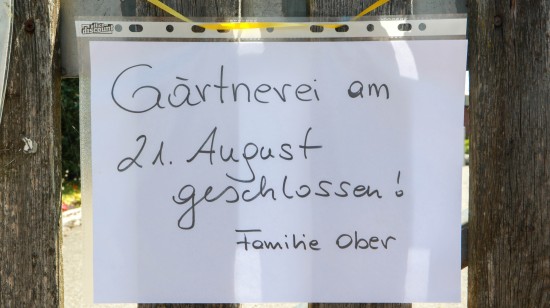 Gärtnerei am
21. August
geschlossen!
Familie Ober